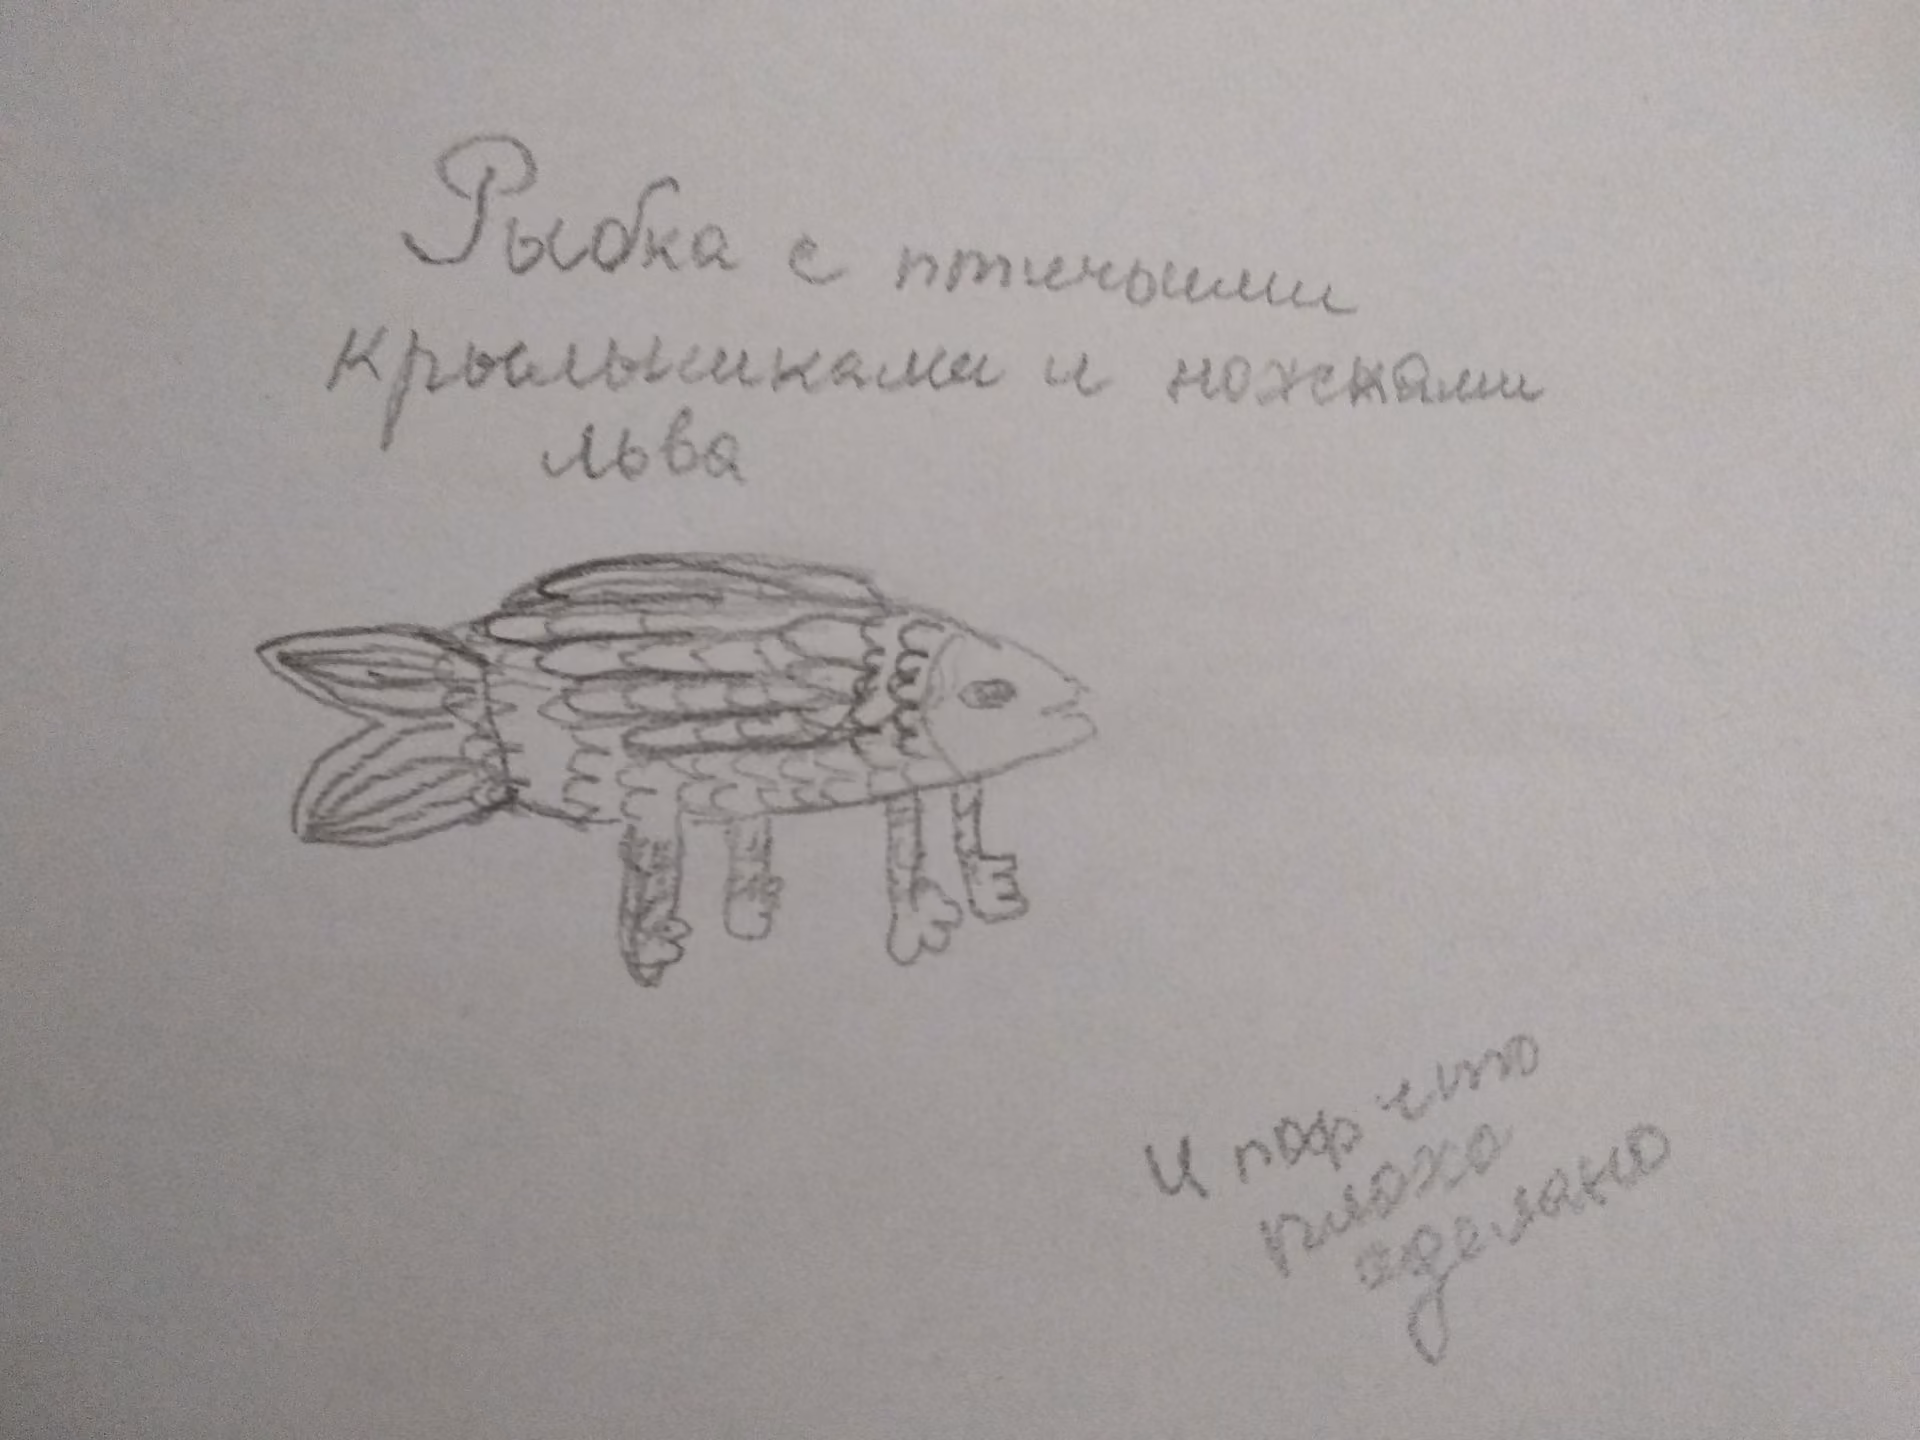 Рыбка с птичьими
крылышками и ножками
льва
И поф что
плохо
сделано